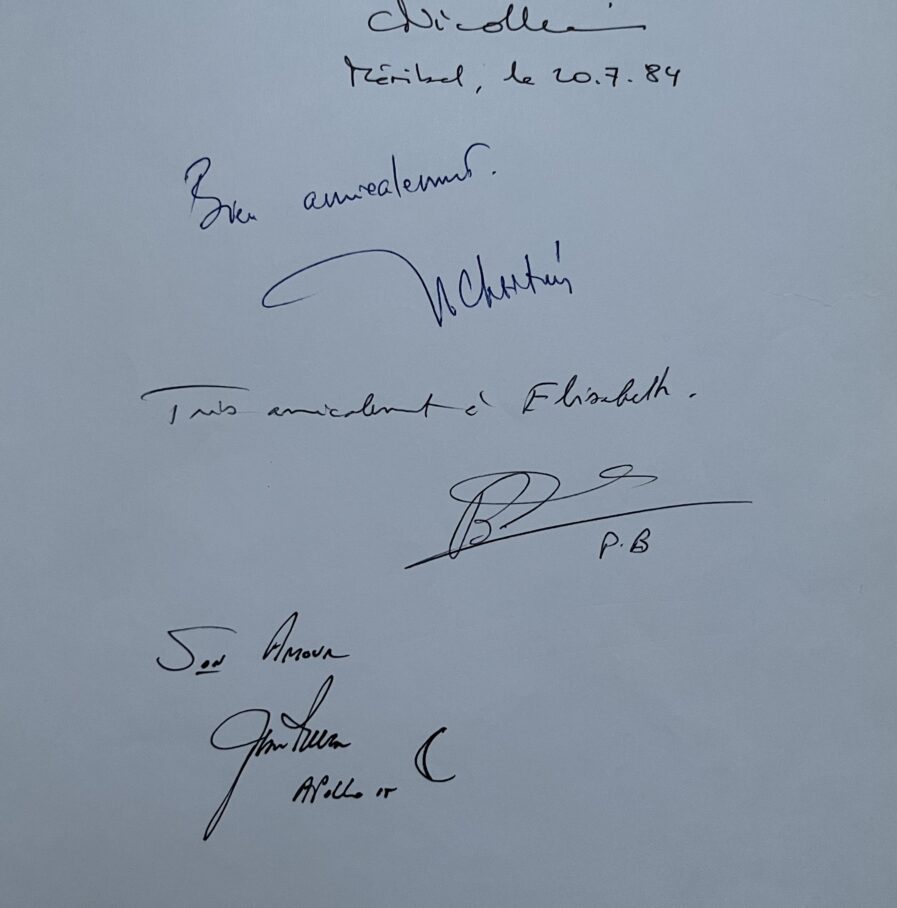 CNicollier
Méribel, le 20.7.84
Bien amicalement.
Chrétien
Très amicalement à Elisabeth.
P.B
Son Amour
Jim Irwin
Apollo 15